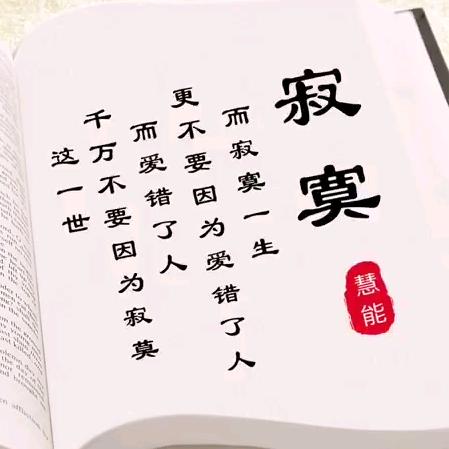 寂寞
慧能
这一世
千万不要因为寂莫
而爱错了人
更不要因为爱错了人
而寂寞一生